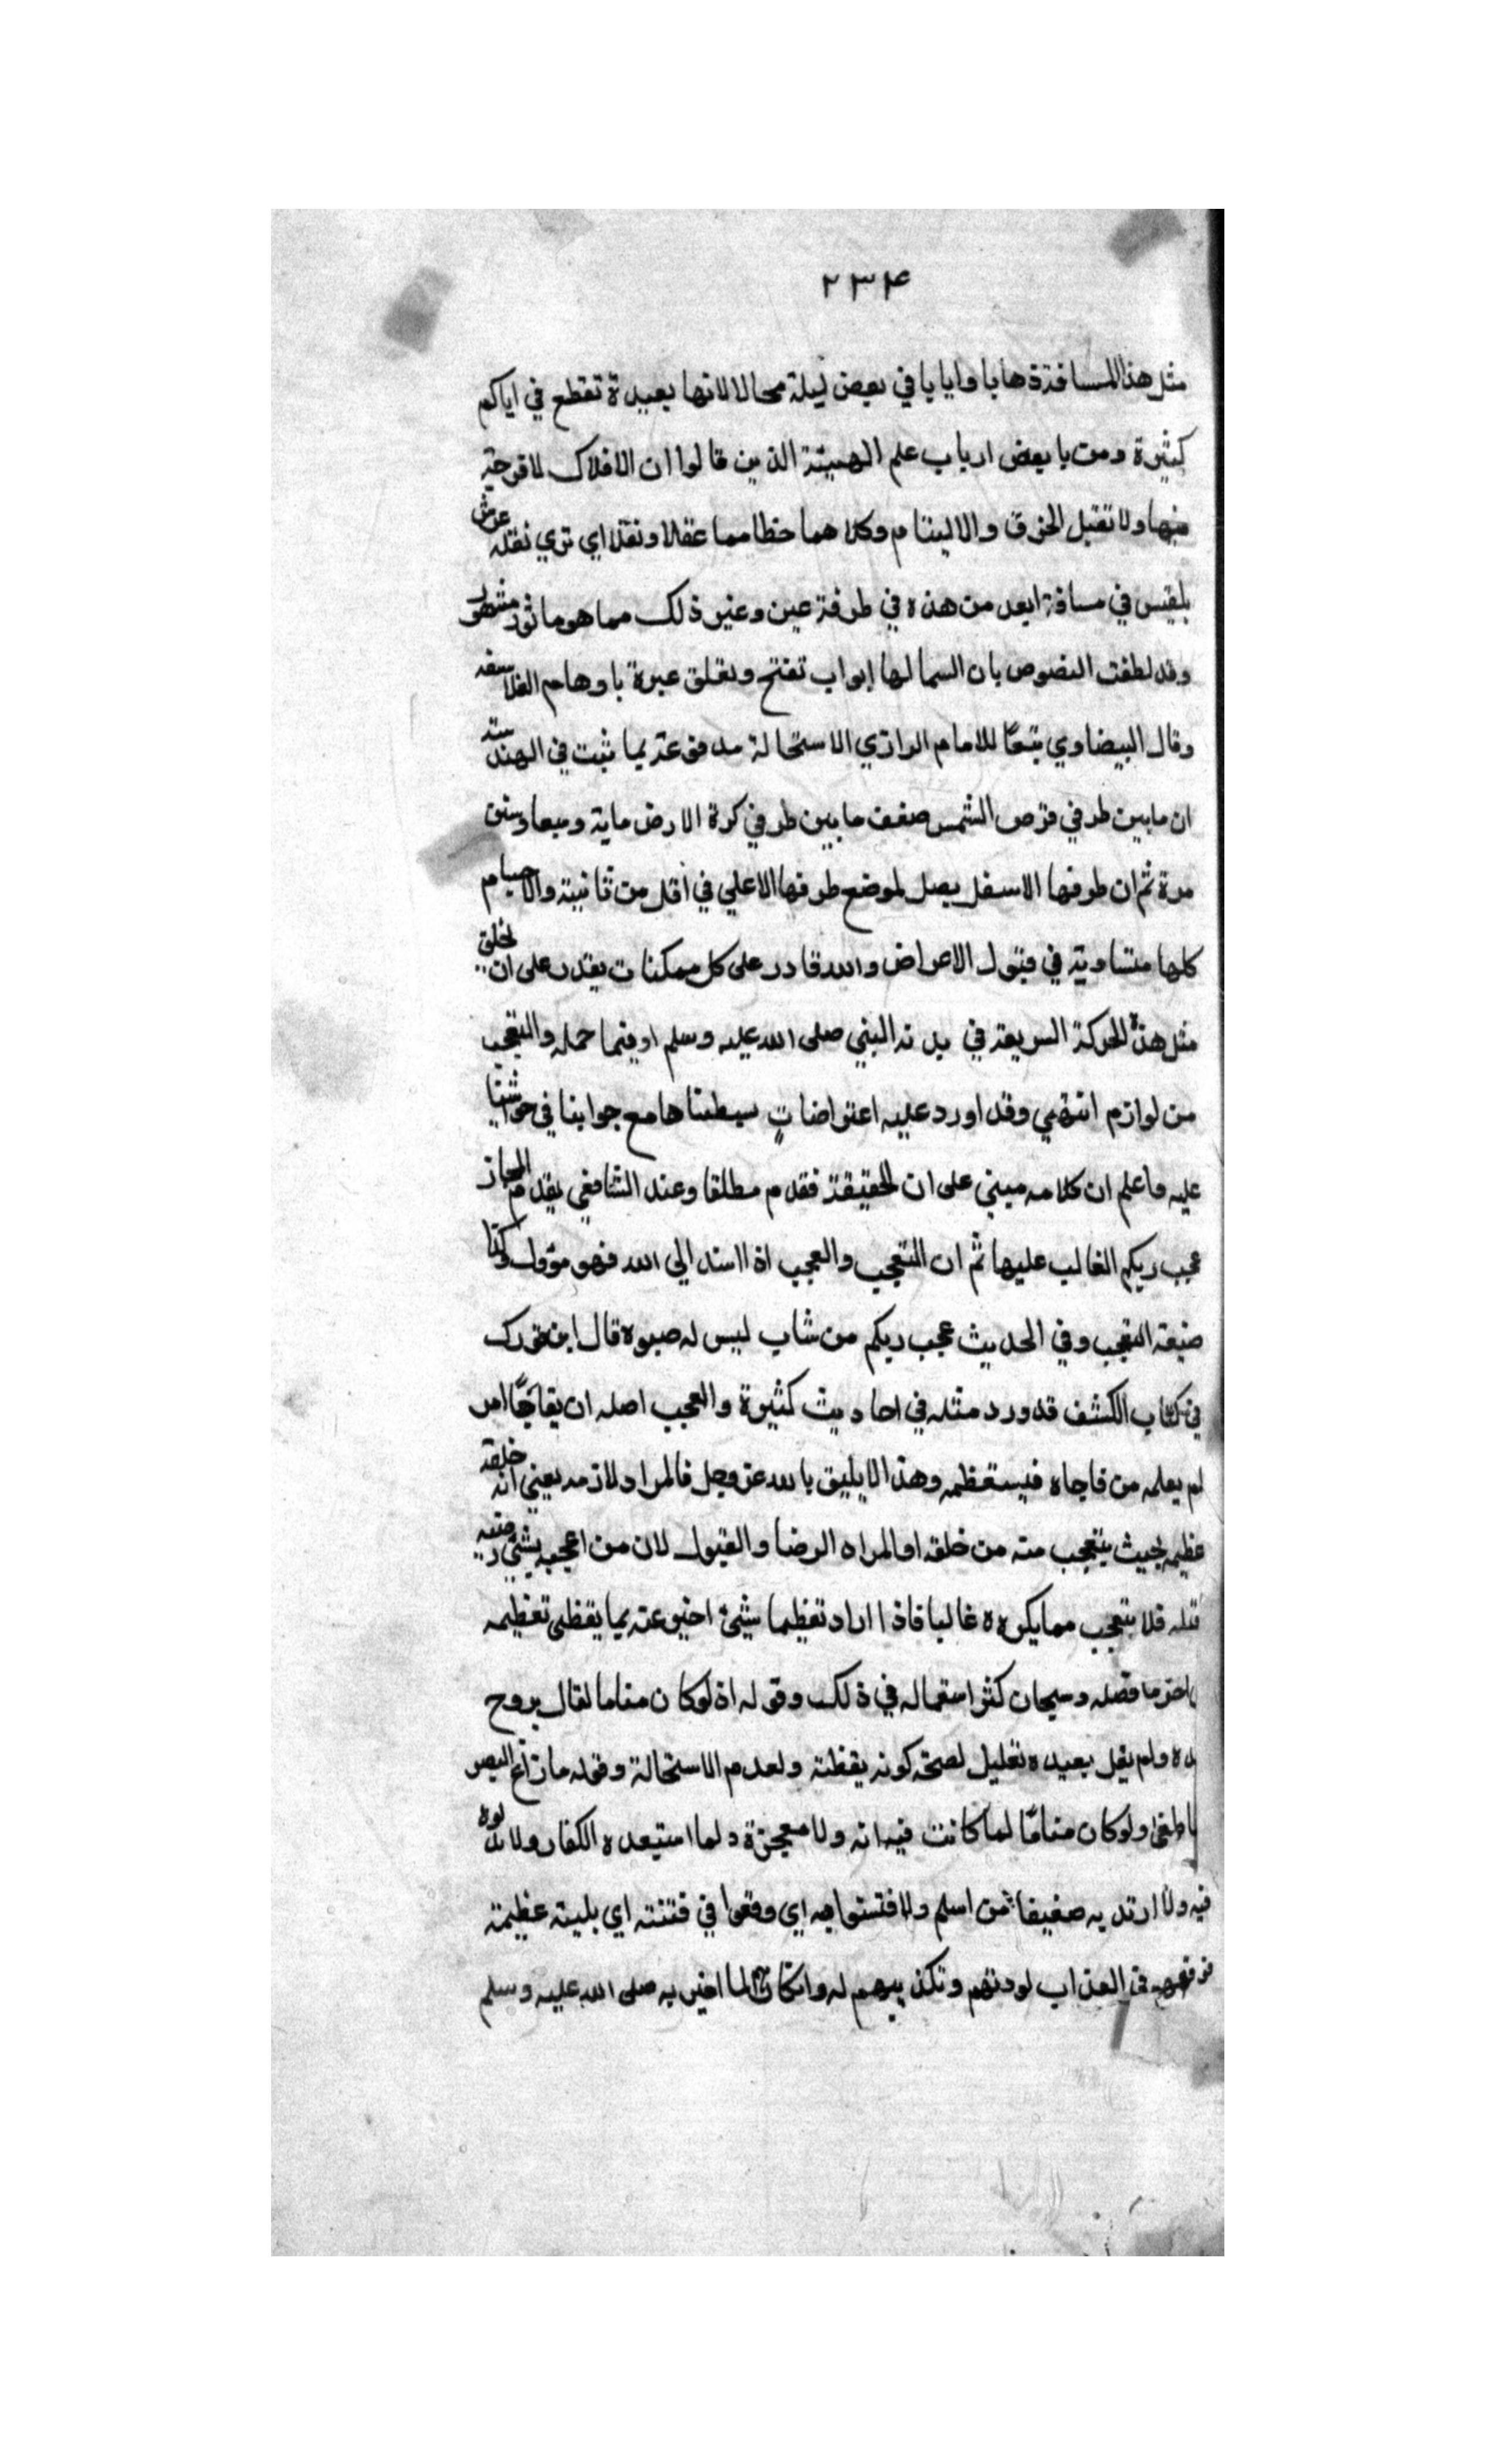 ٢٣٤
مثل هذا المسافة ذهابا وايابا في بعض ليلة محالا لانها بعيدة تقطع في اياكم
كثيرة ومن بابعض ارباب علم الهيئة الذين قالوا ان الافلاك لا فرجة
فيها ولا تقبل الخرق والاليتام وكلاهما خطا مما عقلا ونقلا اي تري نقله عرش
بلقيس في مسافة ابعد من هذه في طرفة عين وغير ذلك مما هو ماثور مشهور
وقد لطفت النصوص بان السما لها ابواب تفتح وتغلق عبرة باوهام الفلاسفه
وقال البيضاوي تبعًا للامام الرازي الاستحالة مدفوعة بما ثبت في الهندسة
ان مابين طرفي قرص الشمس ضعف ما بين طرفي كرة الارض ماية وستين
مرة ثم ان طرفها الاسفل يصل لموضع طرفها الاعلي في اقل من ثانية والاجسام
كلها متساوية في قبول الاعراض والله قادر على كل ممكنات يقدر على ان يخلق
مثل هذه الحركة السريعة في بدنه النبي صلى الله عليه وسلم او فيما حمله والتعجب
من لوازم انتهي وقد اورد عليه اعتراضاتٍ بسطناها مع جوابنا في حواشينا
عليه واعلم ان كلامه مبني على ان الحقيقة فقدم مطلقا وعند الشافعي يقدم المجاز
عجب ربكم الغالب عليها ثم ان التعجب والعجب اذا اسند الي الله فهو مؤول وكذا
صيغة التعجب وفي الحديث عجب ربكم من شاب ليس له صبوه قال ابن فورك
في كتاب الكشف قد ورد مثله في احاديث كثيرة والعجب اصله ان يفاجًا امر
لم يعلمه من فاجاه فيستعظمه وهذا لا يليق بالله عز وجل فالمراد لازمه يعني انه خلقة
عظيمه بحيث يتعجب منه من خلقه او المراه الرضا والقبول لان من اعجبه بشئ رضيه
قبله فلا يتعجب مما يكرهه غالبا فاذا اراد تعظيما شئ اخبر عنه بما يقظى تعظيمه
ما قصله وسبحان كثر استعماله في ذلك وقوله اذ لوكان مناما لقال بروح
ده ولم يقل بعبده تعليل لصحة كونه يقظة ولعدم الاستحالة وقوله مازاغ البصر
ما طغى ولوكان منامًا لما كانت فيه انه ولا معجزة ولما استبعده الكفار ولا
فيه ولا ارتد به ضعيفا ممن اسلم ولا فتتنوا به اي وقعوا في فتنته اي بلية عظيمة
في العذاب لودتهم وتكذيبهم له وانكان لما اخبر به صلى الله عليه وسلم